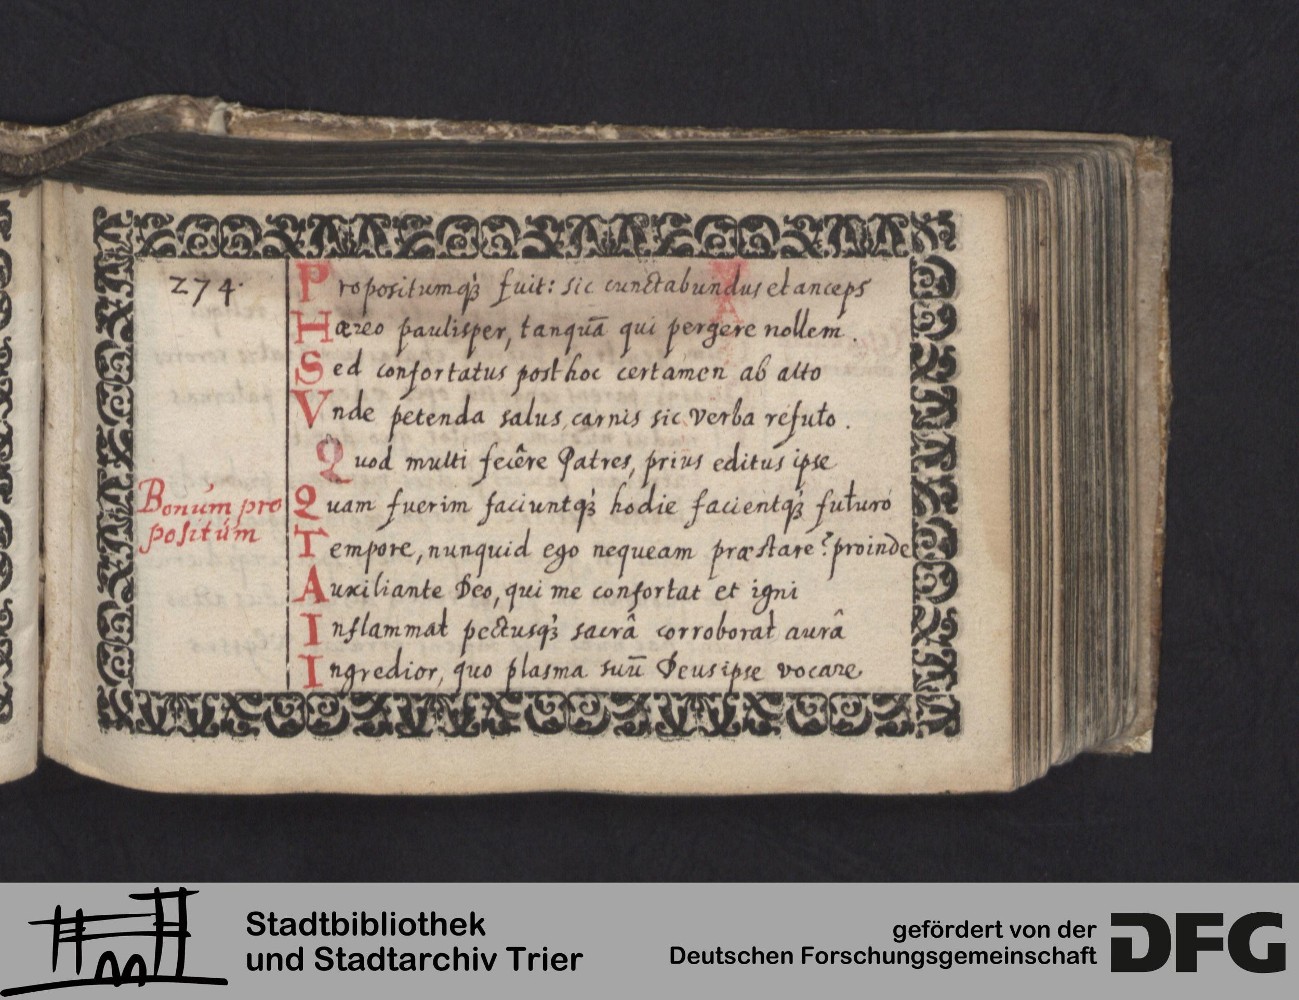 274.
Propositumq᷒ fuit: sic cunctabundus et anceps
Hæreo paulisper, tanquā qui pergere nollem.
Sed confortatus post hoc certamen ab alto
Vnde petenda salus, carnis sic verba refuto.
Quod multi fecêre Patres, prius editus ipse
Bonúm pro
positúm
Quam fuerim faciuntq᷒ hodie facientq᷒ futuro
Tempore, nunquid ego nequeam præstare? proinde
Auxiliante Deo, qui me confortat et igni
Inflammat pectusq᷒ sacrâ corroborat aurâ
Ingredior, quo plasma suū Deus ipse vocare
Stadtbibliothek
und Stadtarchiv Trier
gefördert von der
Deutschen Forschungsgemeinschaft
DFG